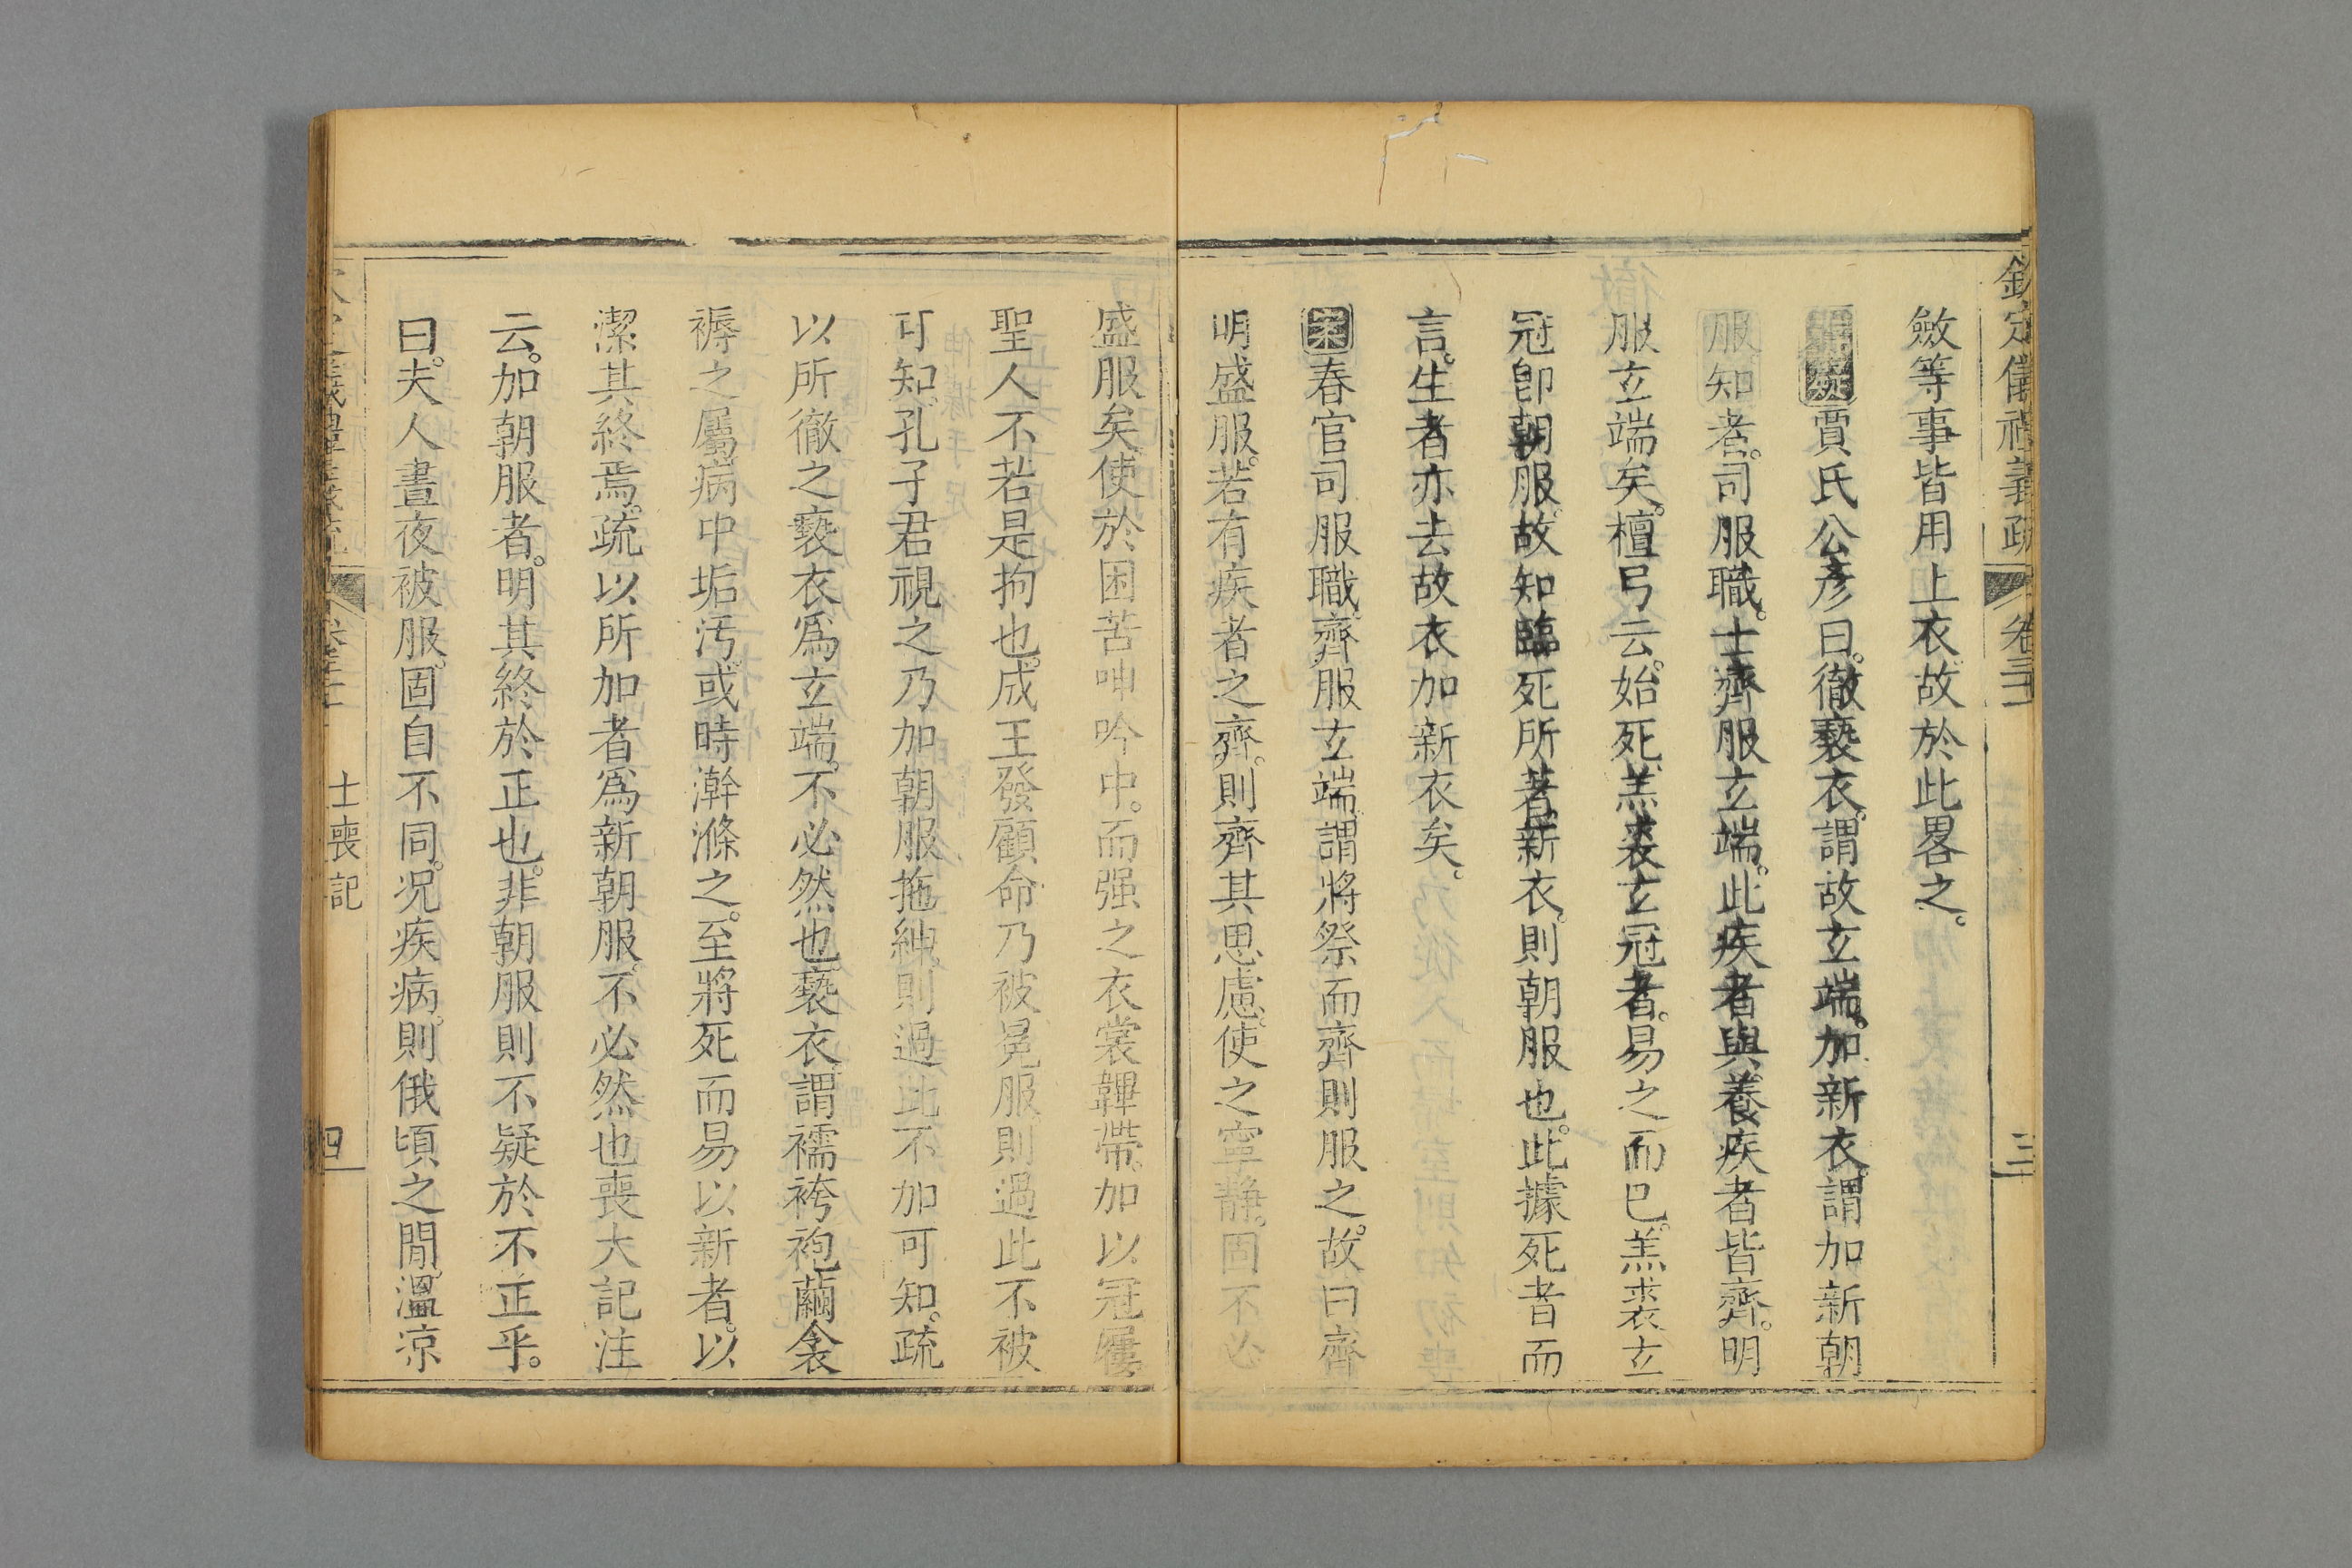 欽定儀禮義疏 卷三十 三
斂等事皆用上衣故於此畧之。
賈氏公彥曰。徹褻衣。謂故玄端。加新衣。謂加新朝
服。知者。司服職。士齊服玄端。此疾者與養疾者皆齊。明
服玄端矣。檀弓云。始死羔裘玄冠者。易之而已。羔裘玄
冠卽朝服。故知臨死所著新衣。則朝服也。此據死者而
言。生者亦去故衣加新衣矣。
案春官司服職。齊服玄端。謂將祭而齊則服之。故曰齊
明盛服。若有疾者之齊。則齊其思慮。使之寧靜。固不必
盛服矣。使於困苦呻吟中。而强之衣裳韠帶。加以冠屨。
聖人不若是拘也。成王發顧命乃被冕服。則過此不被
可知。孔子君視之乃加朝服拖紳。則過此不加可知。疏
以所徹之褻衣爲玄端。不必然也。褻衣謂襦袴袍繭衾
褥之屬。病中垢汚。或時澣滌之。至將死而易以新者。以
潔其終焉。疏以所加者爲新朝服。不必然也。喪大記注
云。加朝服者。明其終於正也。非朝服則不疑於不正乎。
曰。夫人晝夜被服。固自不同。况疾病。則俄頃之閒。溫凉
士喪記 四